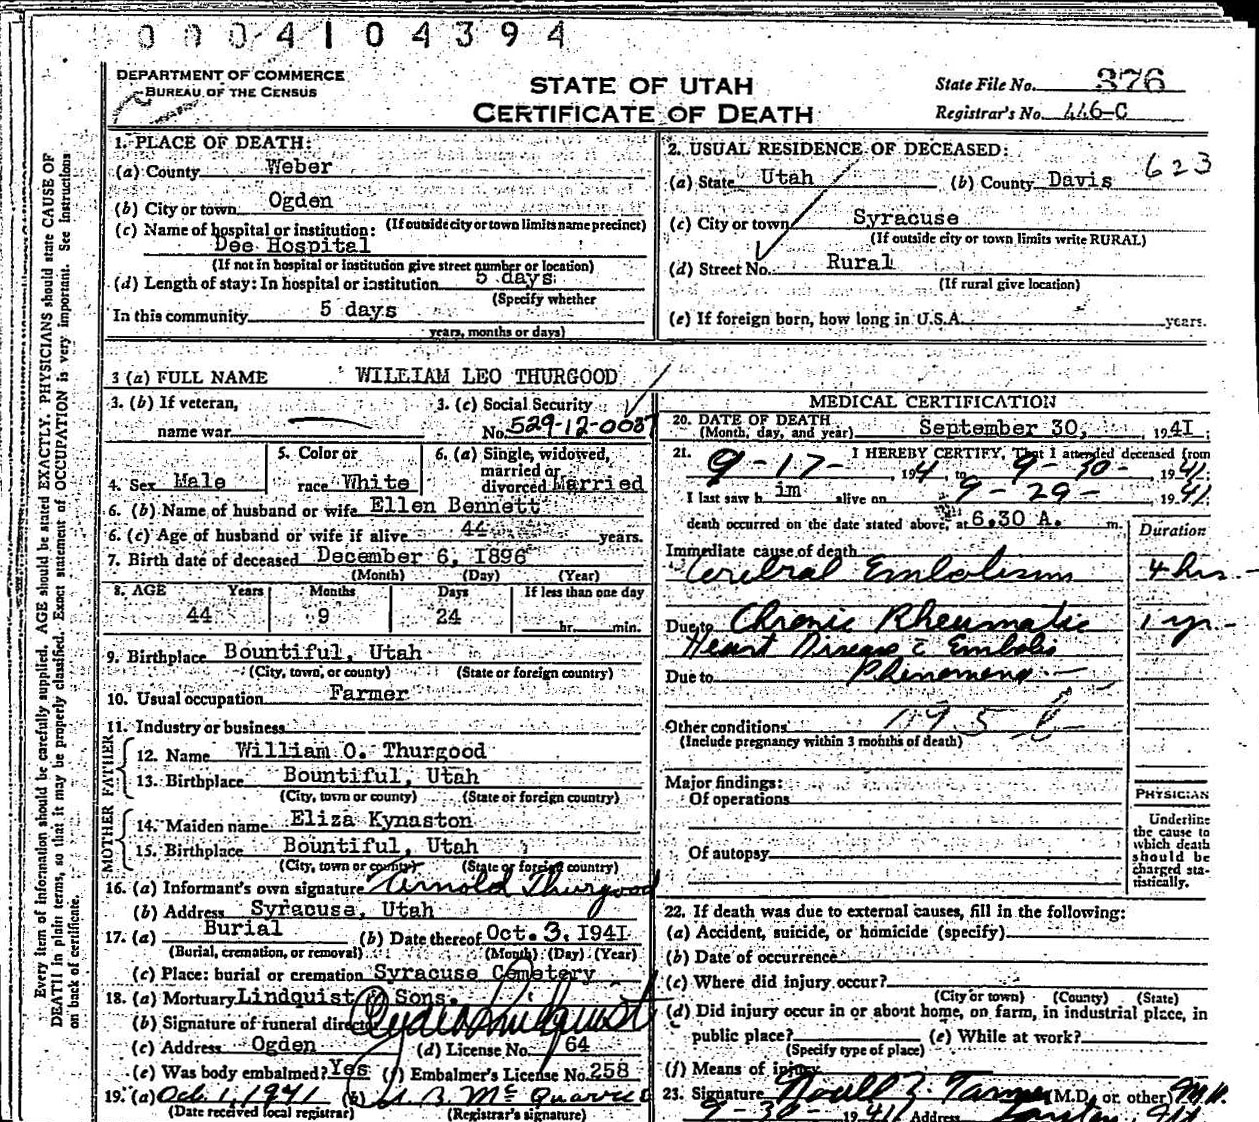 0004104394
DEPARTMENT OF COMMERCE
BUREAU OF THE CENSUS
STATE OF UTAH
CERTIFICATE OF DEATH
State File No. 376
Registrar's No. 446-C
Every item of information should be carefully supplied. AGE should be stated EXACTLY. PHYSICIANS should state CAUSE OF
DEATH in plain terms, so that it may be properly classified. Exact statement of OCCUPATION is very important. See instructions
on back of certificate.
1. PLACE OF DEATH:
(a) County Weber
(b) City or town Ogden
(If outside city or town limits name precinct)
(c) Name of hospital or institution:
Dee Hospital
(If not in hospital or institution give street number or location)
(d) Length of stay: In hospital or institution 5 days
(Specify whether
In this community 5 days
years, months or days)
2. USUAL RESIDENCE OF DECEASED:
623
(a) State Utah (b) County Davis
(c) City or town Syracuse
(If outside city or town limits write RURAL)
(d) Street No. Rural
(If rural give location)
(e) If foreign born, how long in U.S.A. years.
3 (a) FULL NAME WILLIAM LEO THURGOOD
3. (b) If veteran,
name war
3. (c) Social Security
No. 529-12-0087
4. Sex Male
5. Color or
race White
6. (a) Single, widowed,
married or
divorced Married
6. (b) Name of husband or wife Ellen Bennett
6. (c) Age of husband or wife if alive 44 years.
7. Birth date of deceased December 6, 1896
(Month) (Day) (Year)
8. AGE Years Months Days If less than one day
44 9 24 hr. min.
9. Birthplace Bountiful, Utah
(City, town, or county) (State or foreign country)
10. Usual occupation Farmer
11. Industry or business
FATHER
12. Name William O. Thurgood
13. Birthplace Bountiful, Utah
(City, town or county) (State or foreign country)
MOTHER
14. Maiden name Eliza Kynaston
15. Birthplace Bountiful, Utah
(City, town or county) (State or foreign country)
16. (a) Informant's own signature Arnold Thurgood
(b) Address Syracuse, Utah
17. (a) Burial (b) Date thereof Oct. 3, 1941
(Burial, cremation, or removal) (Month) (Day) (Year)
(c) Place: burial or cremation Syracuse Cemetery
18. (a) Mortuary Lindquist & Sons.
(b) Signature of funeral director Lindquist
(c) Address Ogden (d) License No. 64
(e) Was body embalmed? Yes (f) Embalmer's License No. 258
19. (a) Oct. 1, 1941 (b)
(Date received local registrar) (Registrar's signature)
MEDICAL CERTIFICATION
20. DATE OF DEATH
(Month, day, and year) September 30, 1941
21. I HEREBY CERTIFY, That I attended deceased from
9-17- 194 , to 9-30- 1941
I last saw h im alive on 9-29- 1941
death occurred on the date stated above, at 6.30 A. m.
Duration
Immediate cause of death
Cerebral Embolism 4 hrs.
Due to Chronic Rheumatic 1 yr.
Heart Disease c Embolic
Due to Phenomena
Other conditions
(Include pregnancy within 3 months of death)
Major findings:
Of operations
Of autopsy
PHYSICIAN
Underline
the cause to
which death
should be
charged sta-
tistically.
22. If death was due to external causes, fill in the following:
(a) Accident, suicide, or homicide (specify)
(b) Date of occurrence
(c) Where did injury occur?
(City or town) (County) (State)
(d) Did injury occur in or about home, on farm, in industrial place, in
public place? (e) While at work?
(Specify type of place)
(f) Means of injury
23. Signature Noall Z. Tanner (M.D. or other) M.D.
9-30- 1941 Address Layton, Ut.